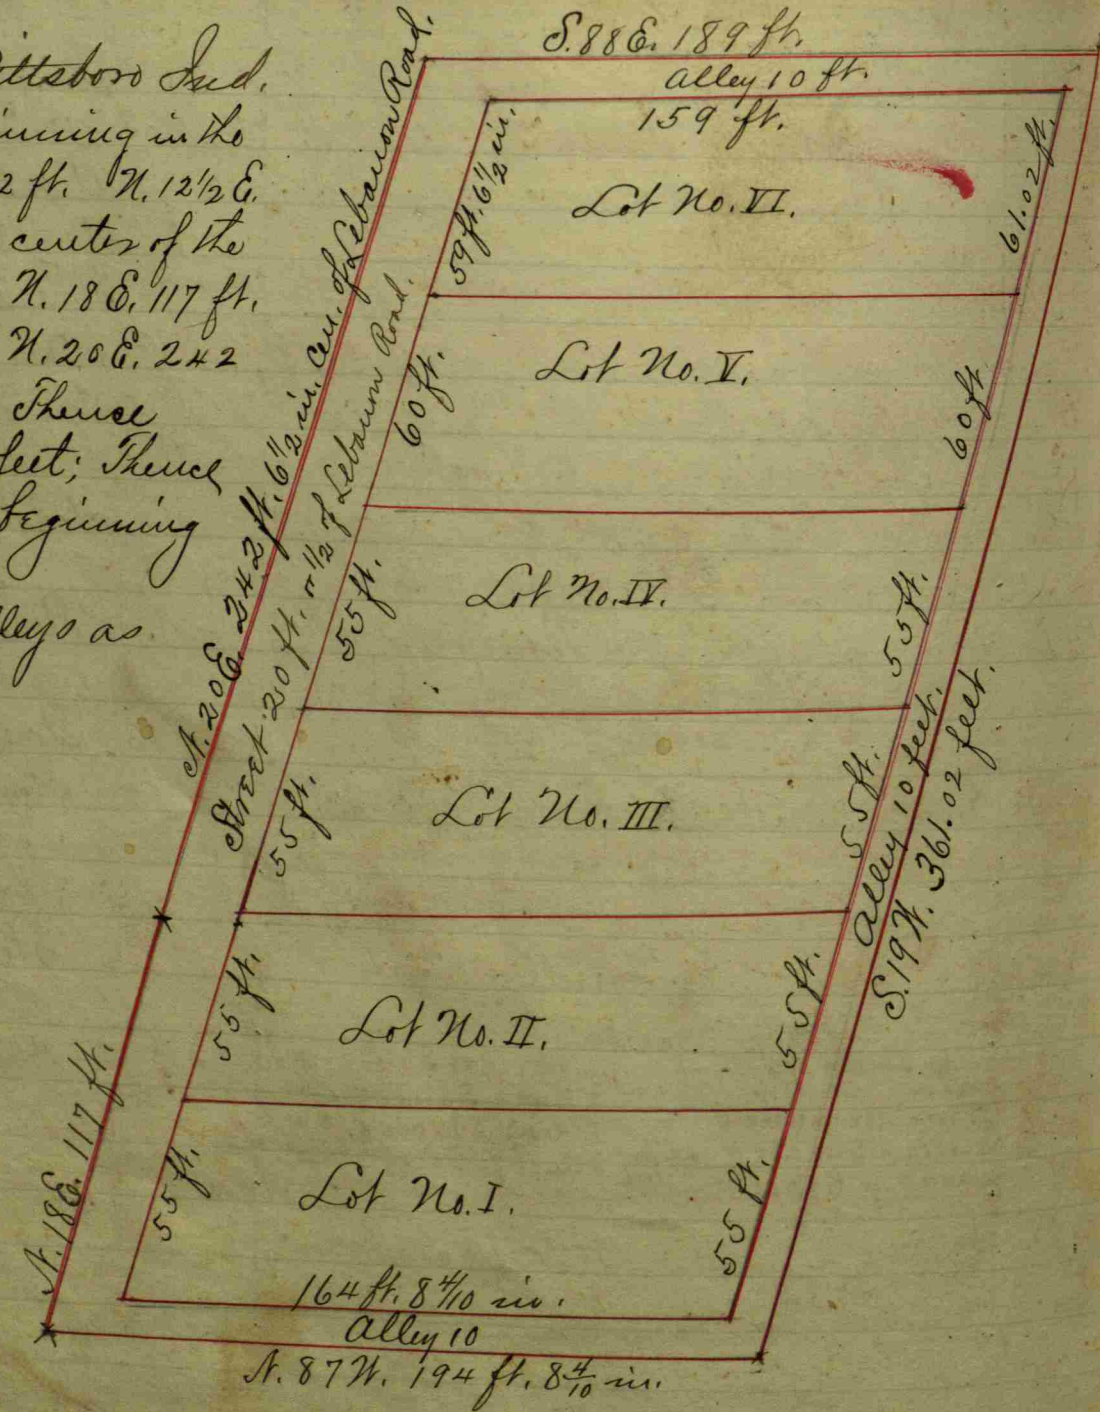 ittsboro Ind.
inning in the
2 ft. N. 12½ E.
center of the
N. 18 E. 117 ft.
N. 20 E. 242
Thence
feet; Thence
beginning
leys as
S. 88 E. 189 ft.
Alley 10 ft.
159 ft.
N. 20 E. 242 ft. 6½ in. Cen. of Lebanon Road.
Street 20 ft. or ½ of Lebanon Road.
59 ft. 6½ in.
Lot No. VI.
61.02 ft.
60 ft.
Lot No. V.
60 ft
55 ft.
Lot No. IV.
55 ft.
55 ft.
Lot No. III.
55 ft.
Alley 10 feet.
S. 19 W. 361.02 feet.
N. 18 E. 117 ft.
55 ft.
Lot No. II.
55 ft.
55 ft.
Lot No. I.
55 ft.
164 ft. 8 4/10 in.
Alley 10
N. 87 W. 194 ft. 8 4/10 in.